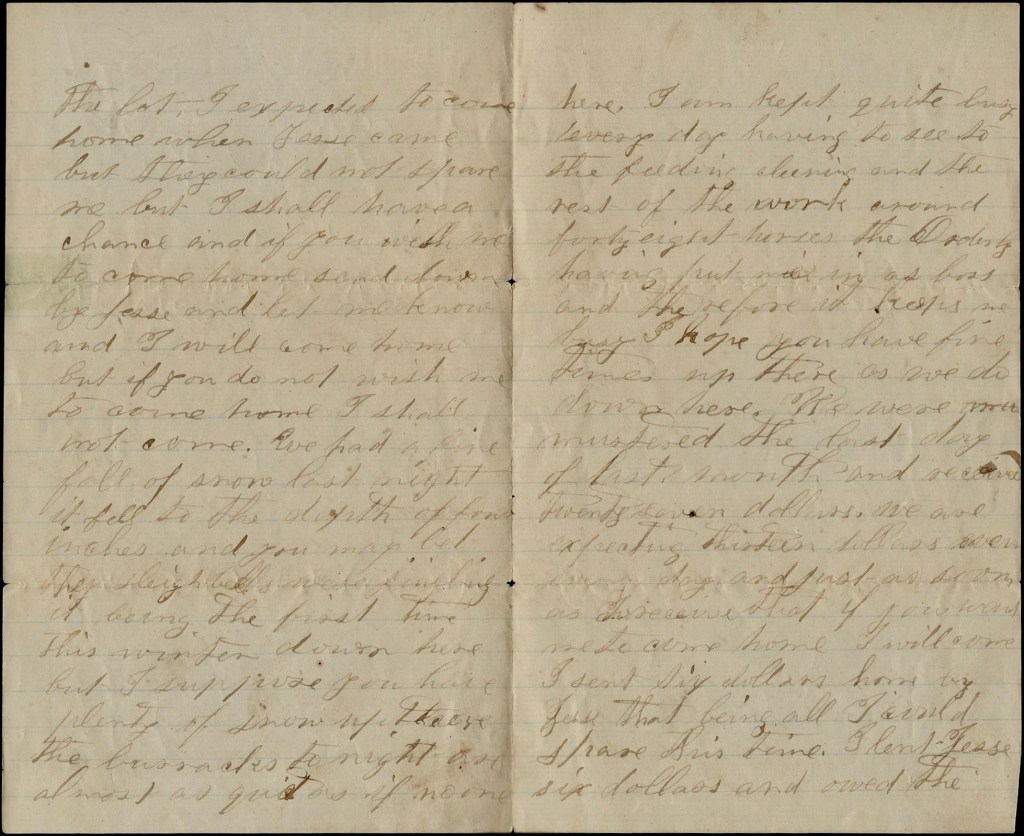 the lot, I expected to come
home when Jesse came
but they could not spare
me but I shall have a
chance and if you wish me
to come home send down
by Jesse and let me know
and I will come home
but if you do not wish me
to come home I shall
not come. We had a fine
fall of snow last night
it fell to the depth of four
inches and you may bet
the sleigh bells were jingling
it being the first time
this winter down here
but I suppose you have
plenty of snow up there
the barracks to night are
almost as quiet as if no one
here. I am kept quite busy
every day having to see to
the feeding cleaning and the
rest of the work around
forty eight horses the Orderly
having put me in as boss
and therefore it keeps me
busy I hope you have fine
times up there as we do
down here. We were
mustered the last day
of last month and receive
twenty seven dollars. we are
expecting thirteen dollars
every day and just as soon
as I receive that if you
me to come home I will come
I sent six dollars home by
Jesse that being all I could
spare this time. I lent Jesse
six dollars and owed the